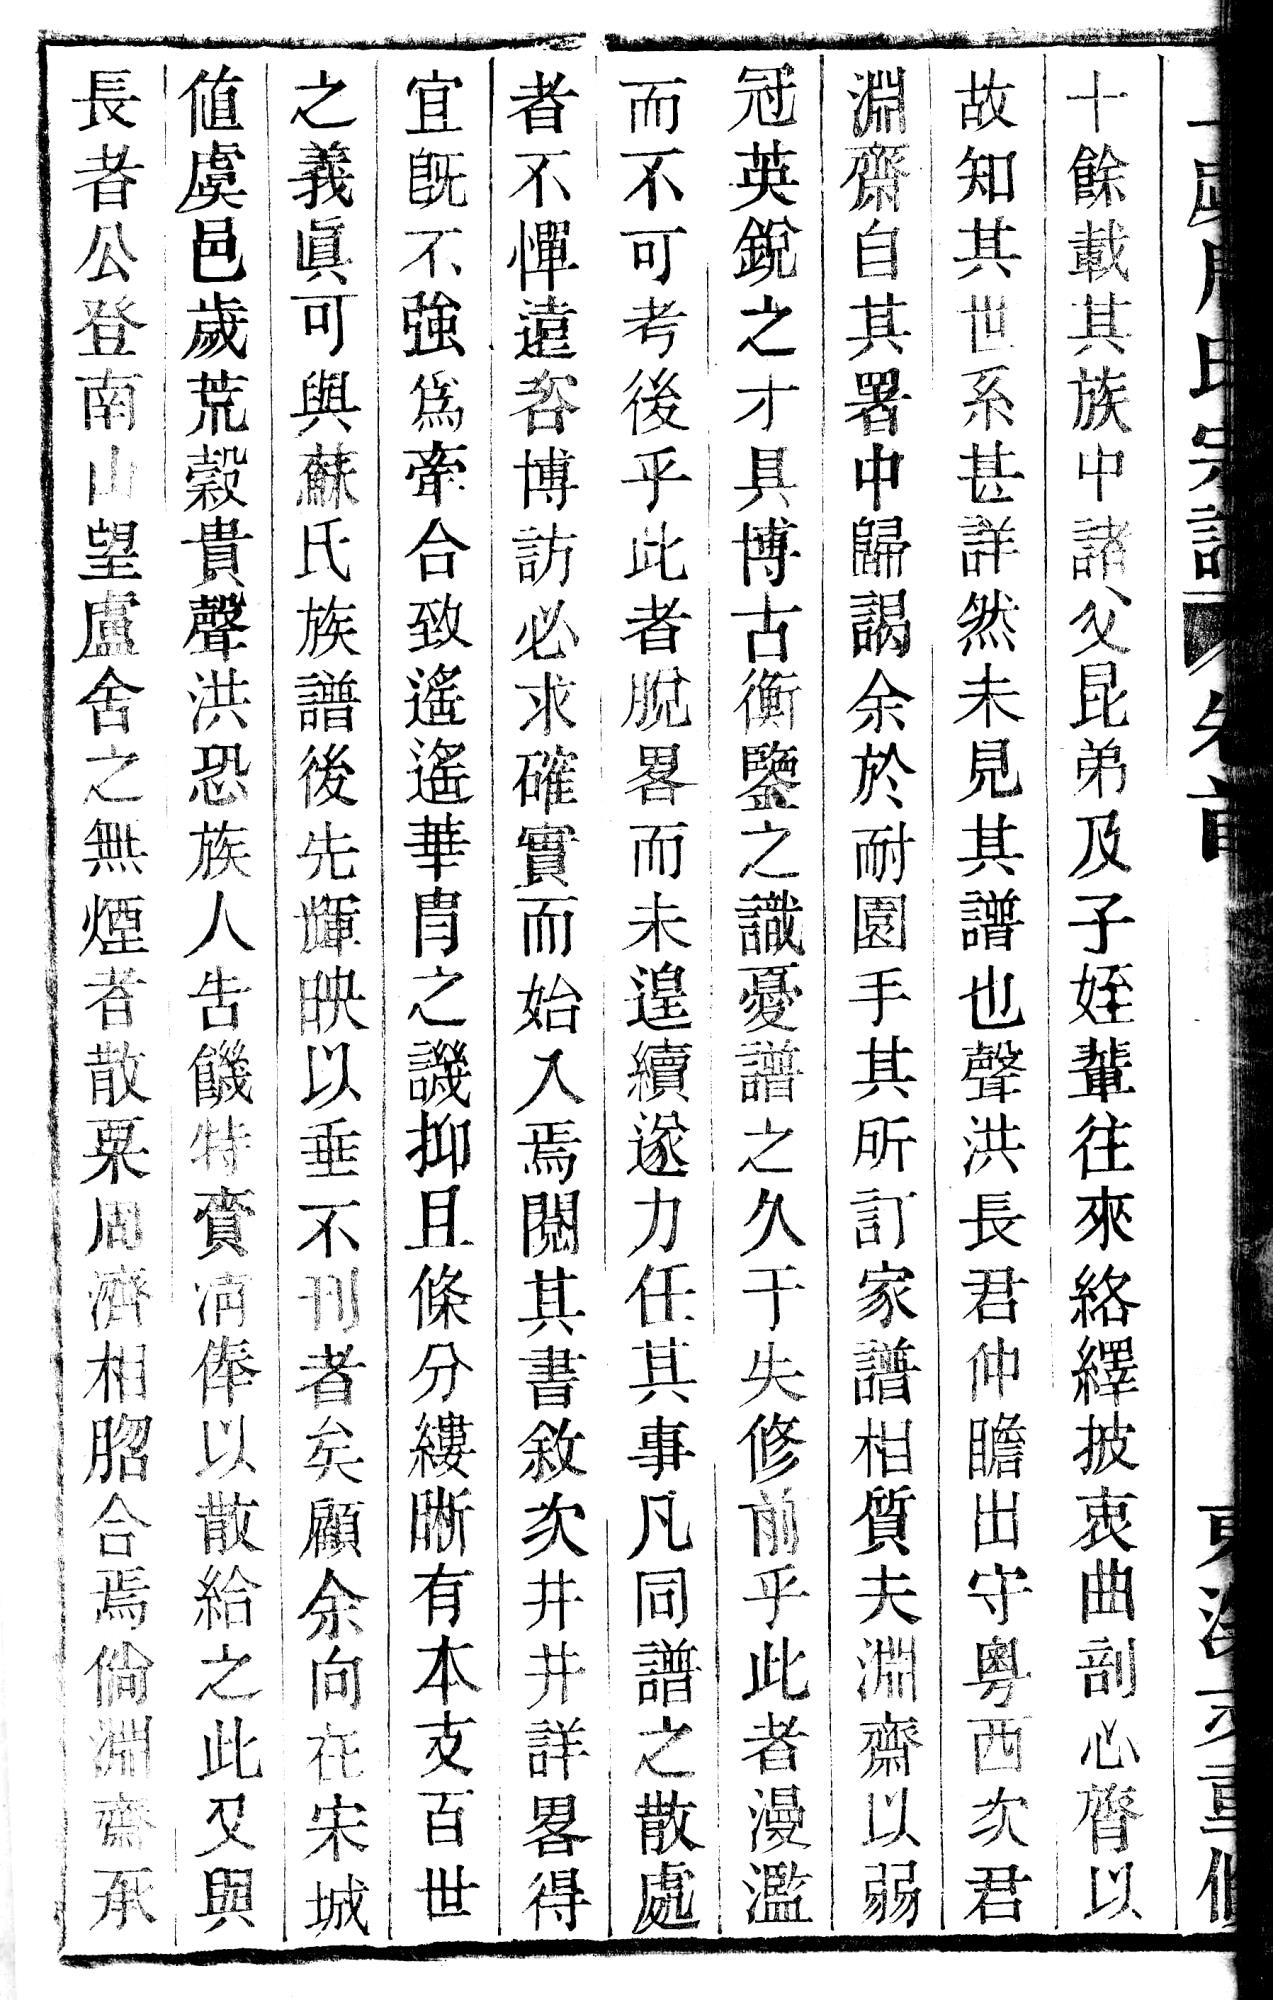 氏宗譜 卷首
重修
十餘載其族中諸父昆弟及子姪輩往來絡繹披衷曲剖心膂以
故知其世系甚詳然未見其譜也聲洪長君仲瞻出守粵西次君
淵齋自其署中歸謁余於耐園手其所訂家譜相質夫淵齋以弱
冠英銳之才具博古衡鑒之識憂譜之久于失修前乎此者漫濫
而不可考後乎此者脫畧而未遑續遂力任其事凡同譜之散處
者不憚遠咨博訪必求確實而始入焉閱其書敘次井井詳畧得
宜旣不強爲牽合致遙遙華胄之譏抑且條分縷晰有本支百世
之義眞可與蘇氏族譜後先輝映以垂不刊者矣顧余向在宋城
値虞邑歲荒穀貴聲洪恐族人告饑特賫淸俸以散給之此又與
長者公登南山望廬舍之無煙者散粟周濟相脗合焉倘淵齋承